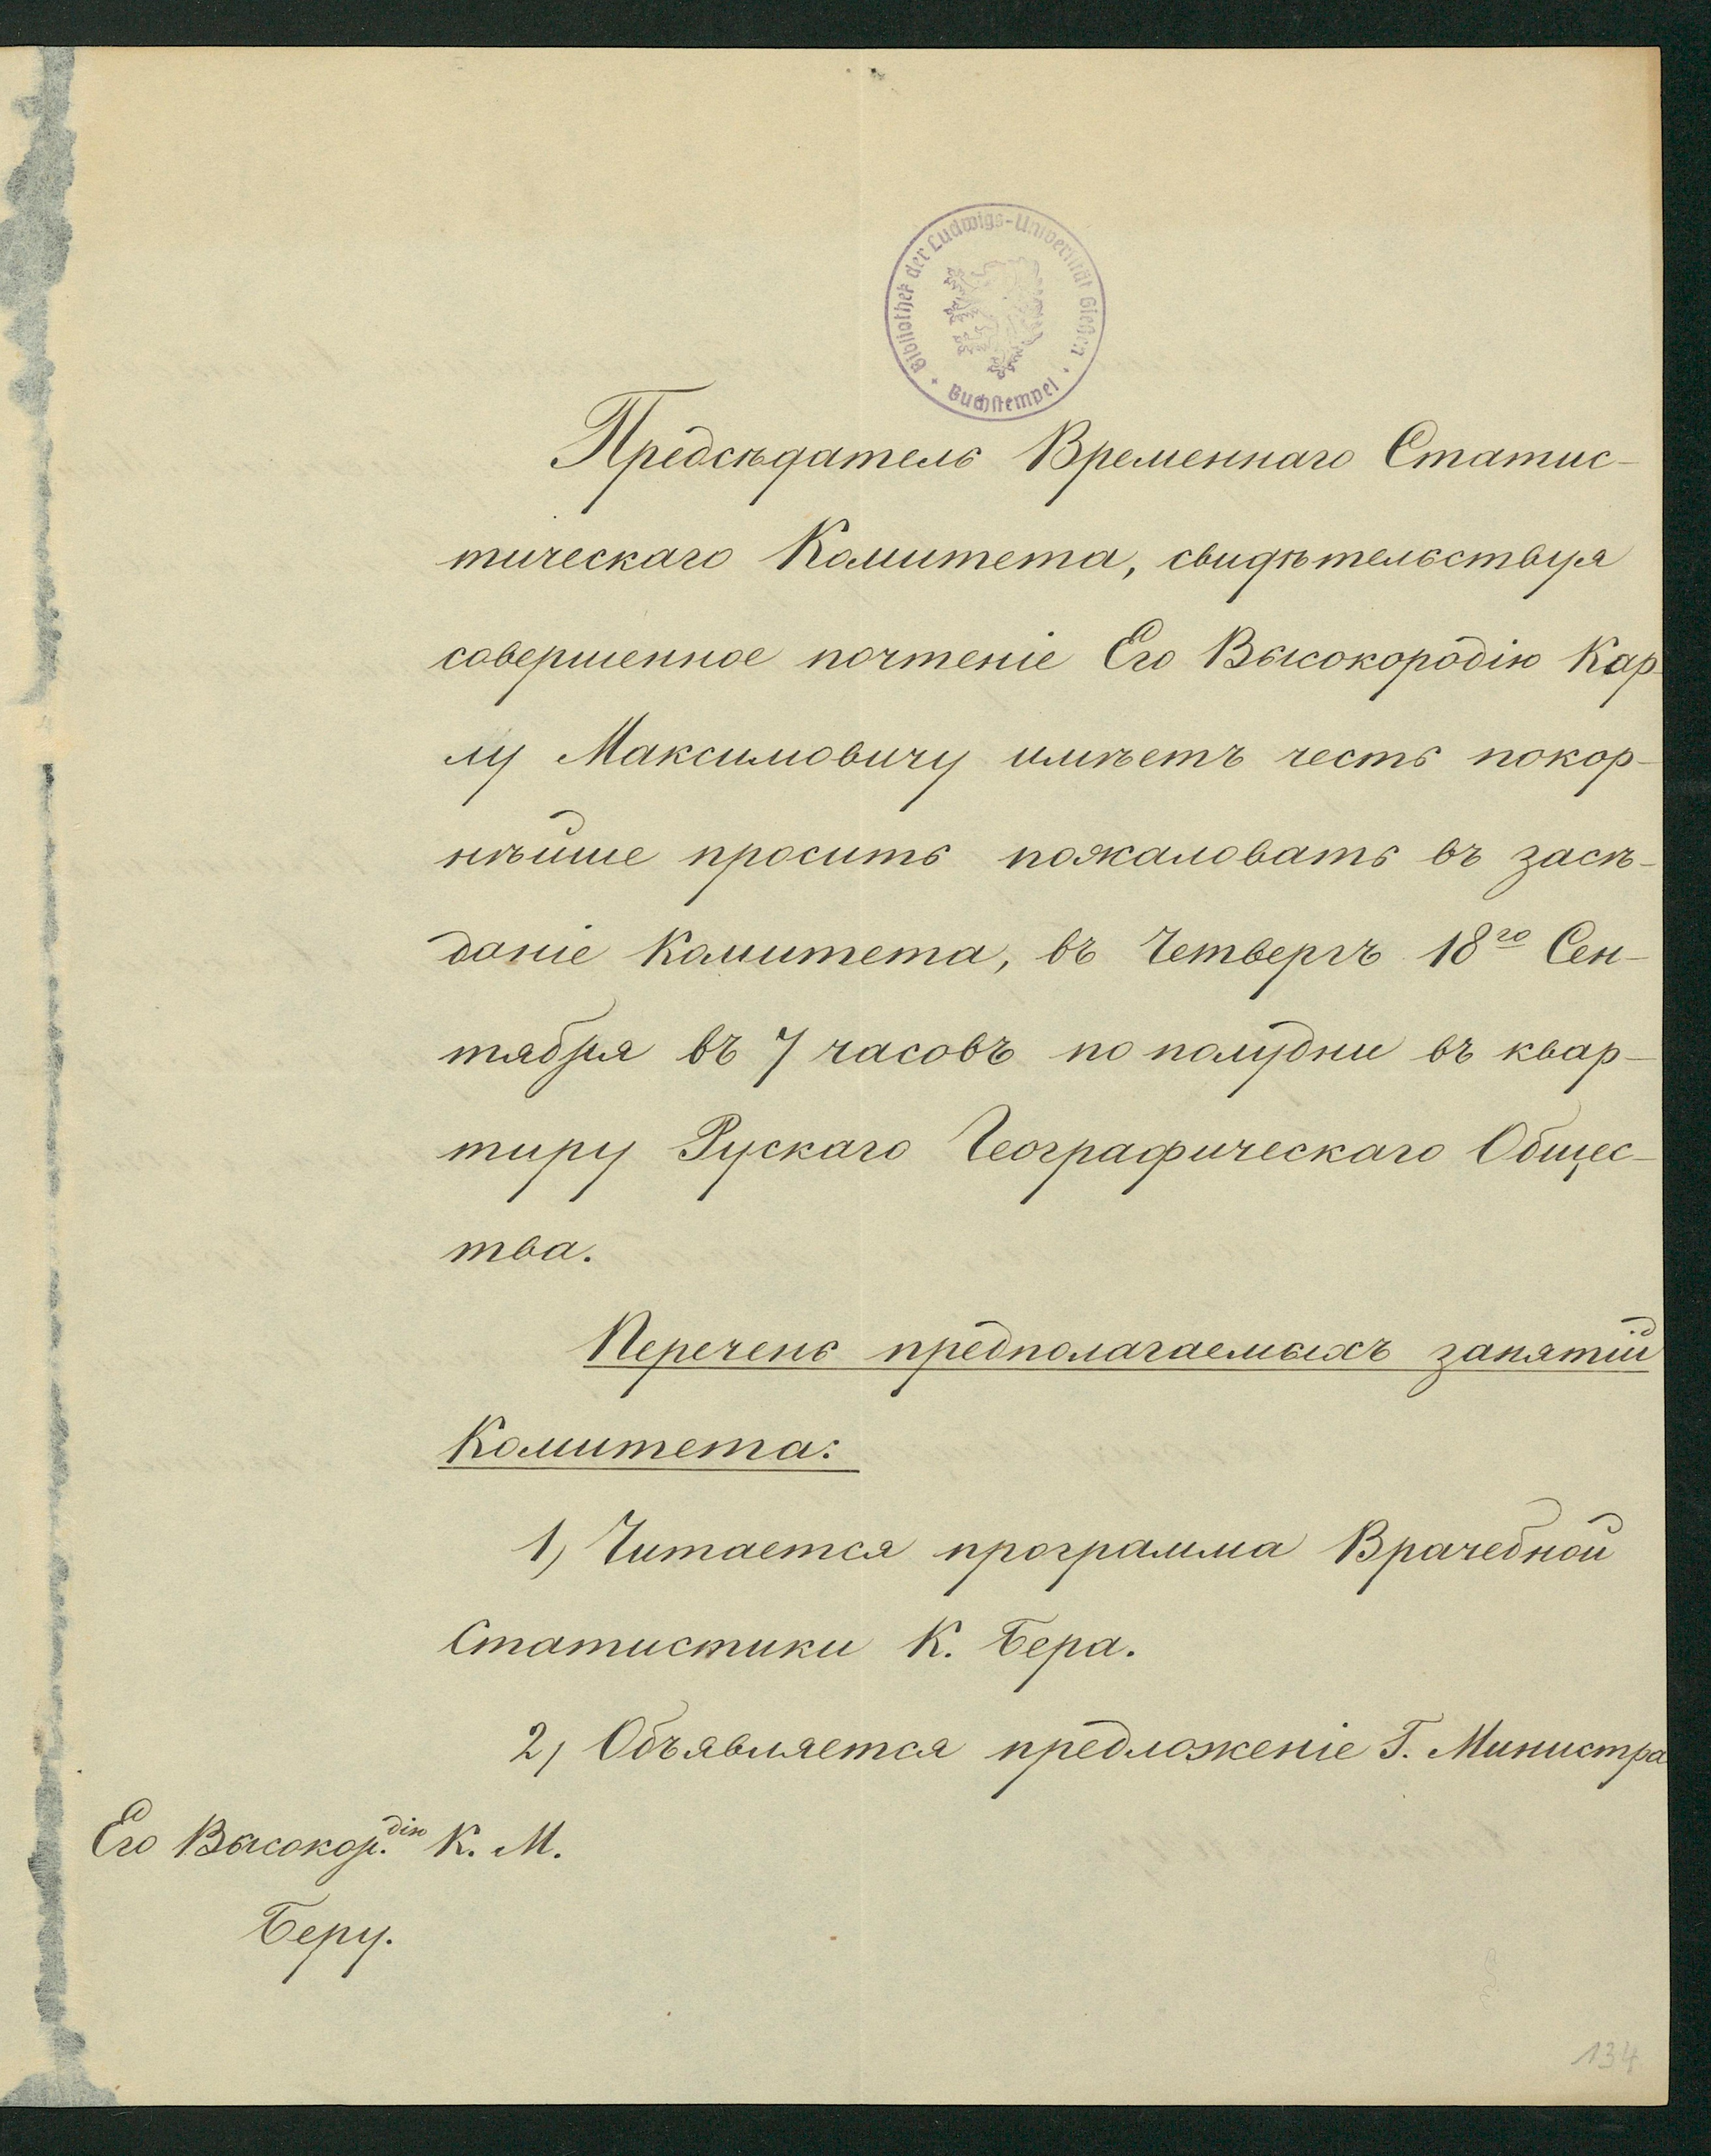 Bibliothek der Ludwigs-Universität Gießen
Buchstempel
Предсѣдатель Временнаго Статис-
тическаго Комитета, свидѣтельствуя
совершенное почтеніе Его Высокородію Кар-
лу Максимовичу имѣетъ честь покор-
нѣйше просить пожаловать въ засѣ-
даніе Комитета, въ Четвергъ 18го Сен-
тября въ 7 часовъ по полудни въ квар-
тиру Рускаго Географическаго Общес-
тва.
Перечень предполагаемыхъ занятій
Комитета:
1, Читается программа Врачебной
Статистики К. Бера.
2, Объявляется предложеніе Г. Министра
Его Высокор.дію К. М.
Беру.
134